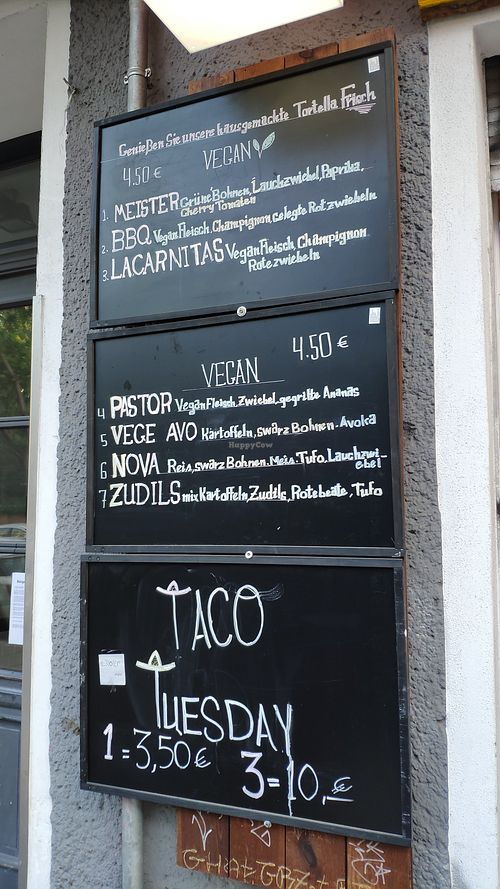 Genießen Sie unsere hausgemachte Tortella Frisch
4.50 € VEGAN
1. MEISTER Grüne Bohnen, Lauchzwiebel, Paprika,
Cherry Tomaten
2. BBQ Vegan Fleisch, Champignon, gelegte Rotzwiebeln
3. LACARNITAS Vegan Fleisch, Champignon
Rotezwiebeln
4.50 €
VEGAN
4 PASTOR Vegan Fleisch, Zwiebel, gegrillte Ananas
5 VEGE AVO Kartoffeln, swarz Bohnen, Avoka
6 NOVA Reis, swarz Bohnen, Meis, Tufo, Lauchzwi-
ebel
7 ZUDILS mix Kartoffeln, Zudils, Rotebeäte, Tufo
HappyCow
TACO
TUESDAY
1 = 3,50 €
3 = 10,- €